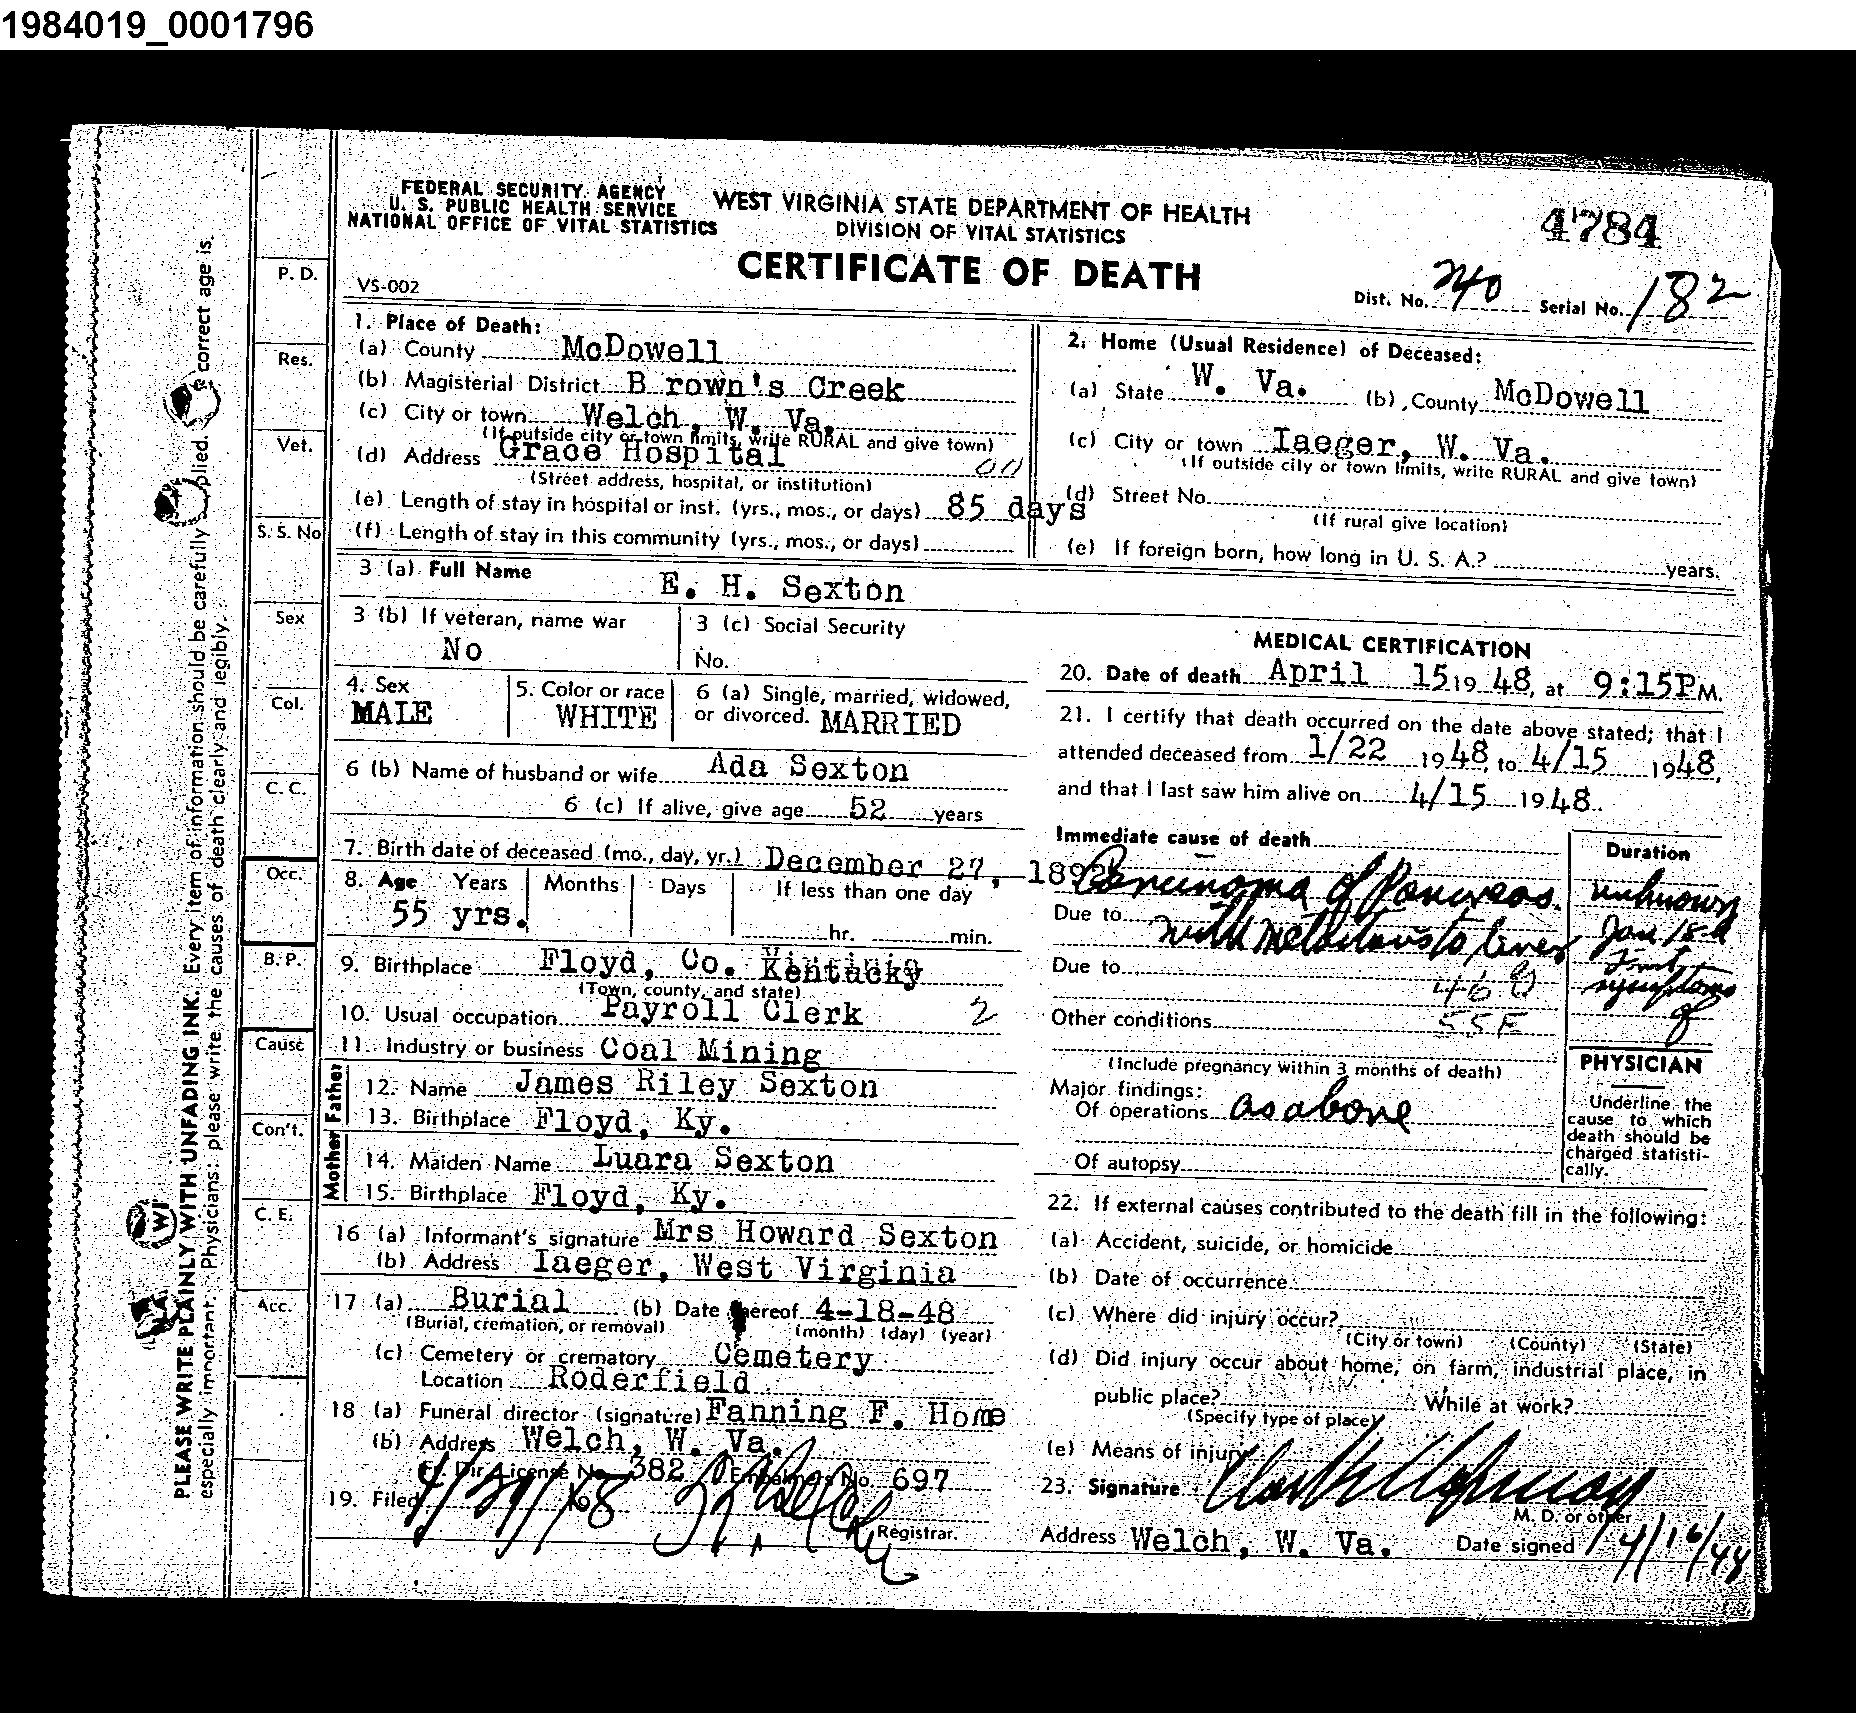 1984019_0001796
FEDERAL SECURITY AGENCY
U. S. PUBLIC HEALTH SERVICE
NATIONAL OFFICE OF VITAL STATISTICS
WEST VIRGINIA STATE DEPARTMENT OF HEALTH
DIVISION OF VITAL STATISTICS
4784
CERTIFICATE OF DEATH
VS-002
Dist. No. 240 Serial No. 182
1. Place of Death:
(a) County McDowell
(b) Magisterial District B rown's Creek
(c) City or town Welch, W. Va.
(If outside city or town limits, write RURAL and give town)
(d) Address Grace Hospital 00
(Street address, hospital, or institution)
(e) Length of stay in hospital or inst. (yrs., mos., or days) 85 days
(f) Length of stay in this community (yrs., mos., or days)
2. Home (Usual Residence) of Deceased:
(a) State W. Va. (b) County McDowell
(c) City or town Iaeger, W. Va.
(If outside city or town limits, write RURAL and give town)
(d) Street No.
(If rural give location)
(e) If foreign born, how long in U. S. A.? years.
3 (a) Full Name E. H. Sexton
3 (b) If veteran, name war No
3 (c) Social Security No.
4. Sex MALE
5. Color or race WHITE
6 (a) Single, married, widowed, or divorced. MARRIED
6 (b) Name of husband or wife Ada Sexton
6 (c) If alive, give age 52 years
7. Birth date of deceased (mo., day, yr.) December 27, 1892
8. Age Years Months Days If less than one day
55 yrs. hr. min.
9. Birthplace Floyd, Co. Kentucky
(Town, county, and state)
10. Usual occupation Payroll Clerk 2
11. Industry or business Coal Mining
Father
12. Name James Riley Sexton
13. Birthplace Floyd, Ky.
Mother
14. Maiden Name Luara Sexton
15. Birthplace Floyd, Ky.
16 (a) Informant's signature Mrs Howard Sexton
(b) Address Iaeger, West Virginia
17 (a) Burial (b) Date thereof 4-18-48
(Burial, cremation, or removal) (month) (day) (year)
(c) Cemetery or crematory Cemetery
Location Roderfield
18 (a) Funeral director (signature) Fanning F. Home
(b) Address Welch, W. Va.
F. Dir License No. 382 Embalmers No. 697
19. Filed
Registrar.
MEDICAL CERTIFICATION
20. Date of death April 15 19 48, at 9:15P M.
21. I certify that death occurred on the date above stated; that I
attended deceased from 1/22 1948, to 4/15 1948,
and that I last saw him alive on 4/15 1948.
Immediate cause of death
Carcinoma of Pancreas.
Due to with metastasis to liver
Due to 46 8
Other conditions 55F
(Include pregnancy within 3 months of death)
Duration
unknown
Jan 18
First
symptoms
of
Major findings:
Of operations as above
Of autopsy
PHYSICIAN
Underline the
cause to which
death should be
charged statisti-
cally.
22. If external causes contributed to the death fill in the following:
(a) Accident, suicide, or homicide
(b) Date of occurrence
(c) Where did injury occur?
(City or town) (County) (State)
(d) Did injury occur about home, on farm, industrial place, in
public place? While at work?
(Specify type of place)
(e) Means of injury
23. Signature
M. D. or other
Address Welch, W. Va. Date signed 4/16/48
P. D.
Res.
Vet.
S. S. No
Sex
Col.
C. C.
Occ.
B. P.
Cause
Con't.
C. E.
Acc.
PLEASE WRITE PLAINLY WITH UNFADING INK. Every item of information should be carefully supplied. correct age is
especially important. Physicians: please write the causes of death clearly and legibly.